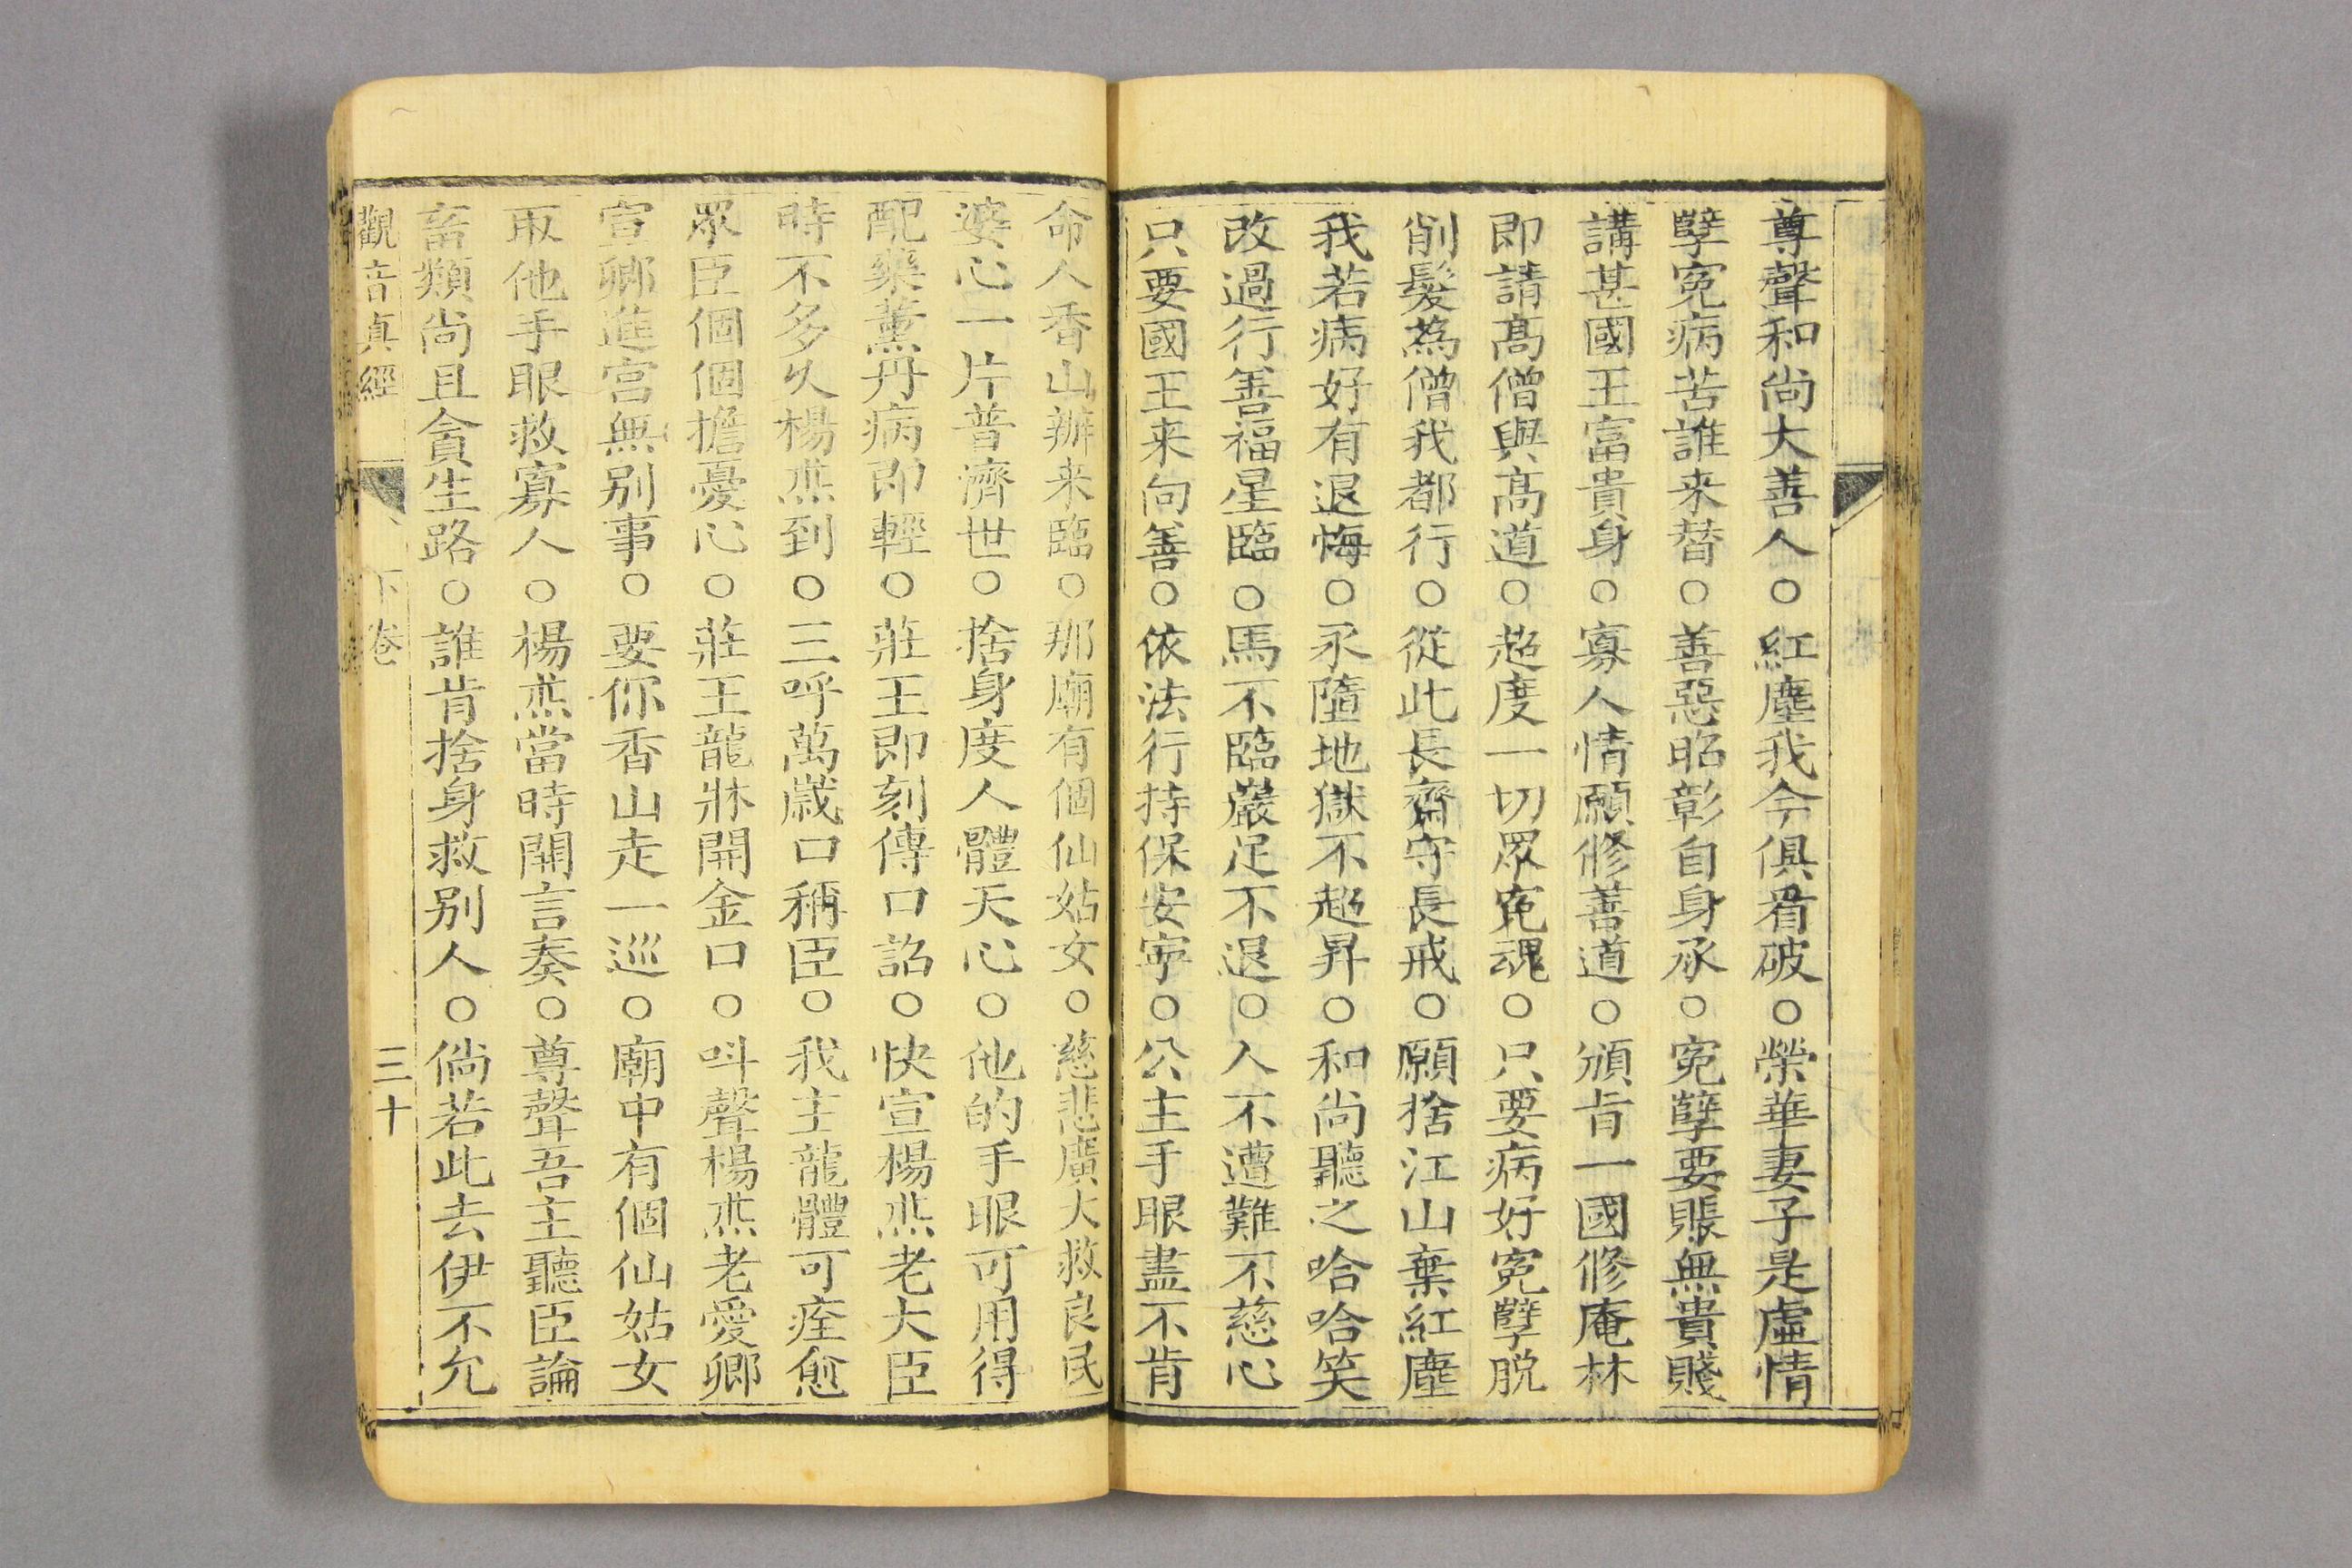 尊聲和尚大善人○紅塵我今俱看破○榮華妻子是虛情
孽寃病苦誰来替○善惡昭彰自身承○寃孽要賬無貴賤
講甚國王富貴身○寡人情願修善道○頒旨一國修庵林
即請髙僧與髙道○超度一切眾寃魂○只要病好寃孽脱
削髮為僧我都行○從此長齋守長戒○願捨江山棄紅塵
我若病好有退悔○永墮地獄不超昇○和尚聽之哈哈笑
改過行善福星臨○馬不臨巖足不退○人不遭難不慈心
只要國王来向善○依法行持保安寧○公主手眼盡不肯
命人香山辦来臨○那廟有個仙姑女○慈悲廣大救良民
婆心一片普濟世○捨身度人體天心○他的手眼可用得
配藥薰丹病即輕○莊王即刻傳口詔○快宣楊烝老大臣
時不多久楊烝到○三呼萬歲口稱臣○我主龍體可痊愈
眾臣個個擔憂心○莊王龍牀開金口○呌聲楊烝老愛卿
宣卿進宮無别事○要你香山走一巡○廟中有個仙姑女
取他手眼救寡人○楊烝當時開言奏○尊聲吾主聽臣論
畜類尚且貪生路○誰肯捨身救别人○倘若此去伊不允
觀音真經 下卷 三十